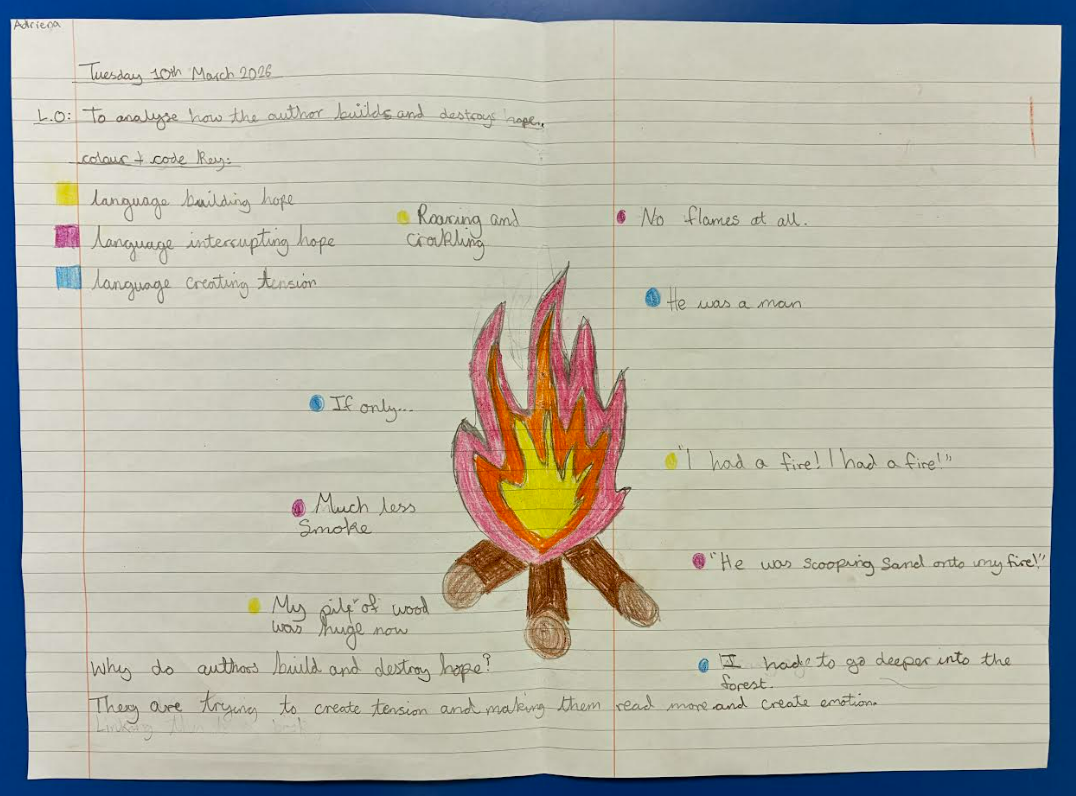 Adriena
Tuesday 10th March 2026
L.O: To analyse how the author builds and destroys hope.
colour + code key:
language building hope
language interrupting hope
language creating tension
Roaring and
crakling
No flames at all.
He was a man
If only...
"I had a fire! I had a fire!"
Much less
Smoke
"He was scooping sand onto my fire!"
My pile of wood
was huge now
Why do authors build and destroy hope?
I had to go deeper into the
forest.
They are trying to create tension and making them read more and create emotion.
Linking